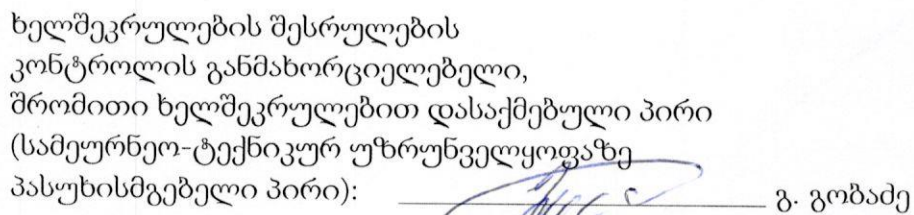 ხელშეკრულების შესრულების
კონტროლის განმახორციელებელი,
შრომითი ხელშეკრულებით დასაქმებული პირი
(სამეურნეო-ტექნიკურ უზრუნველყოფაზე
პასუხისმგებელი პირი): გ. გობაძე